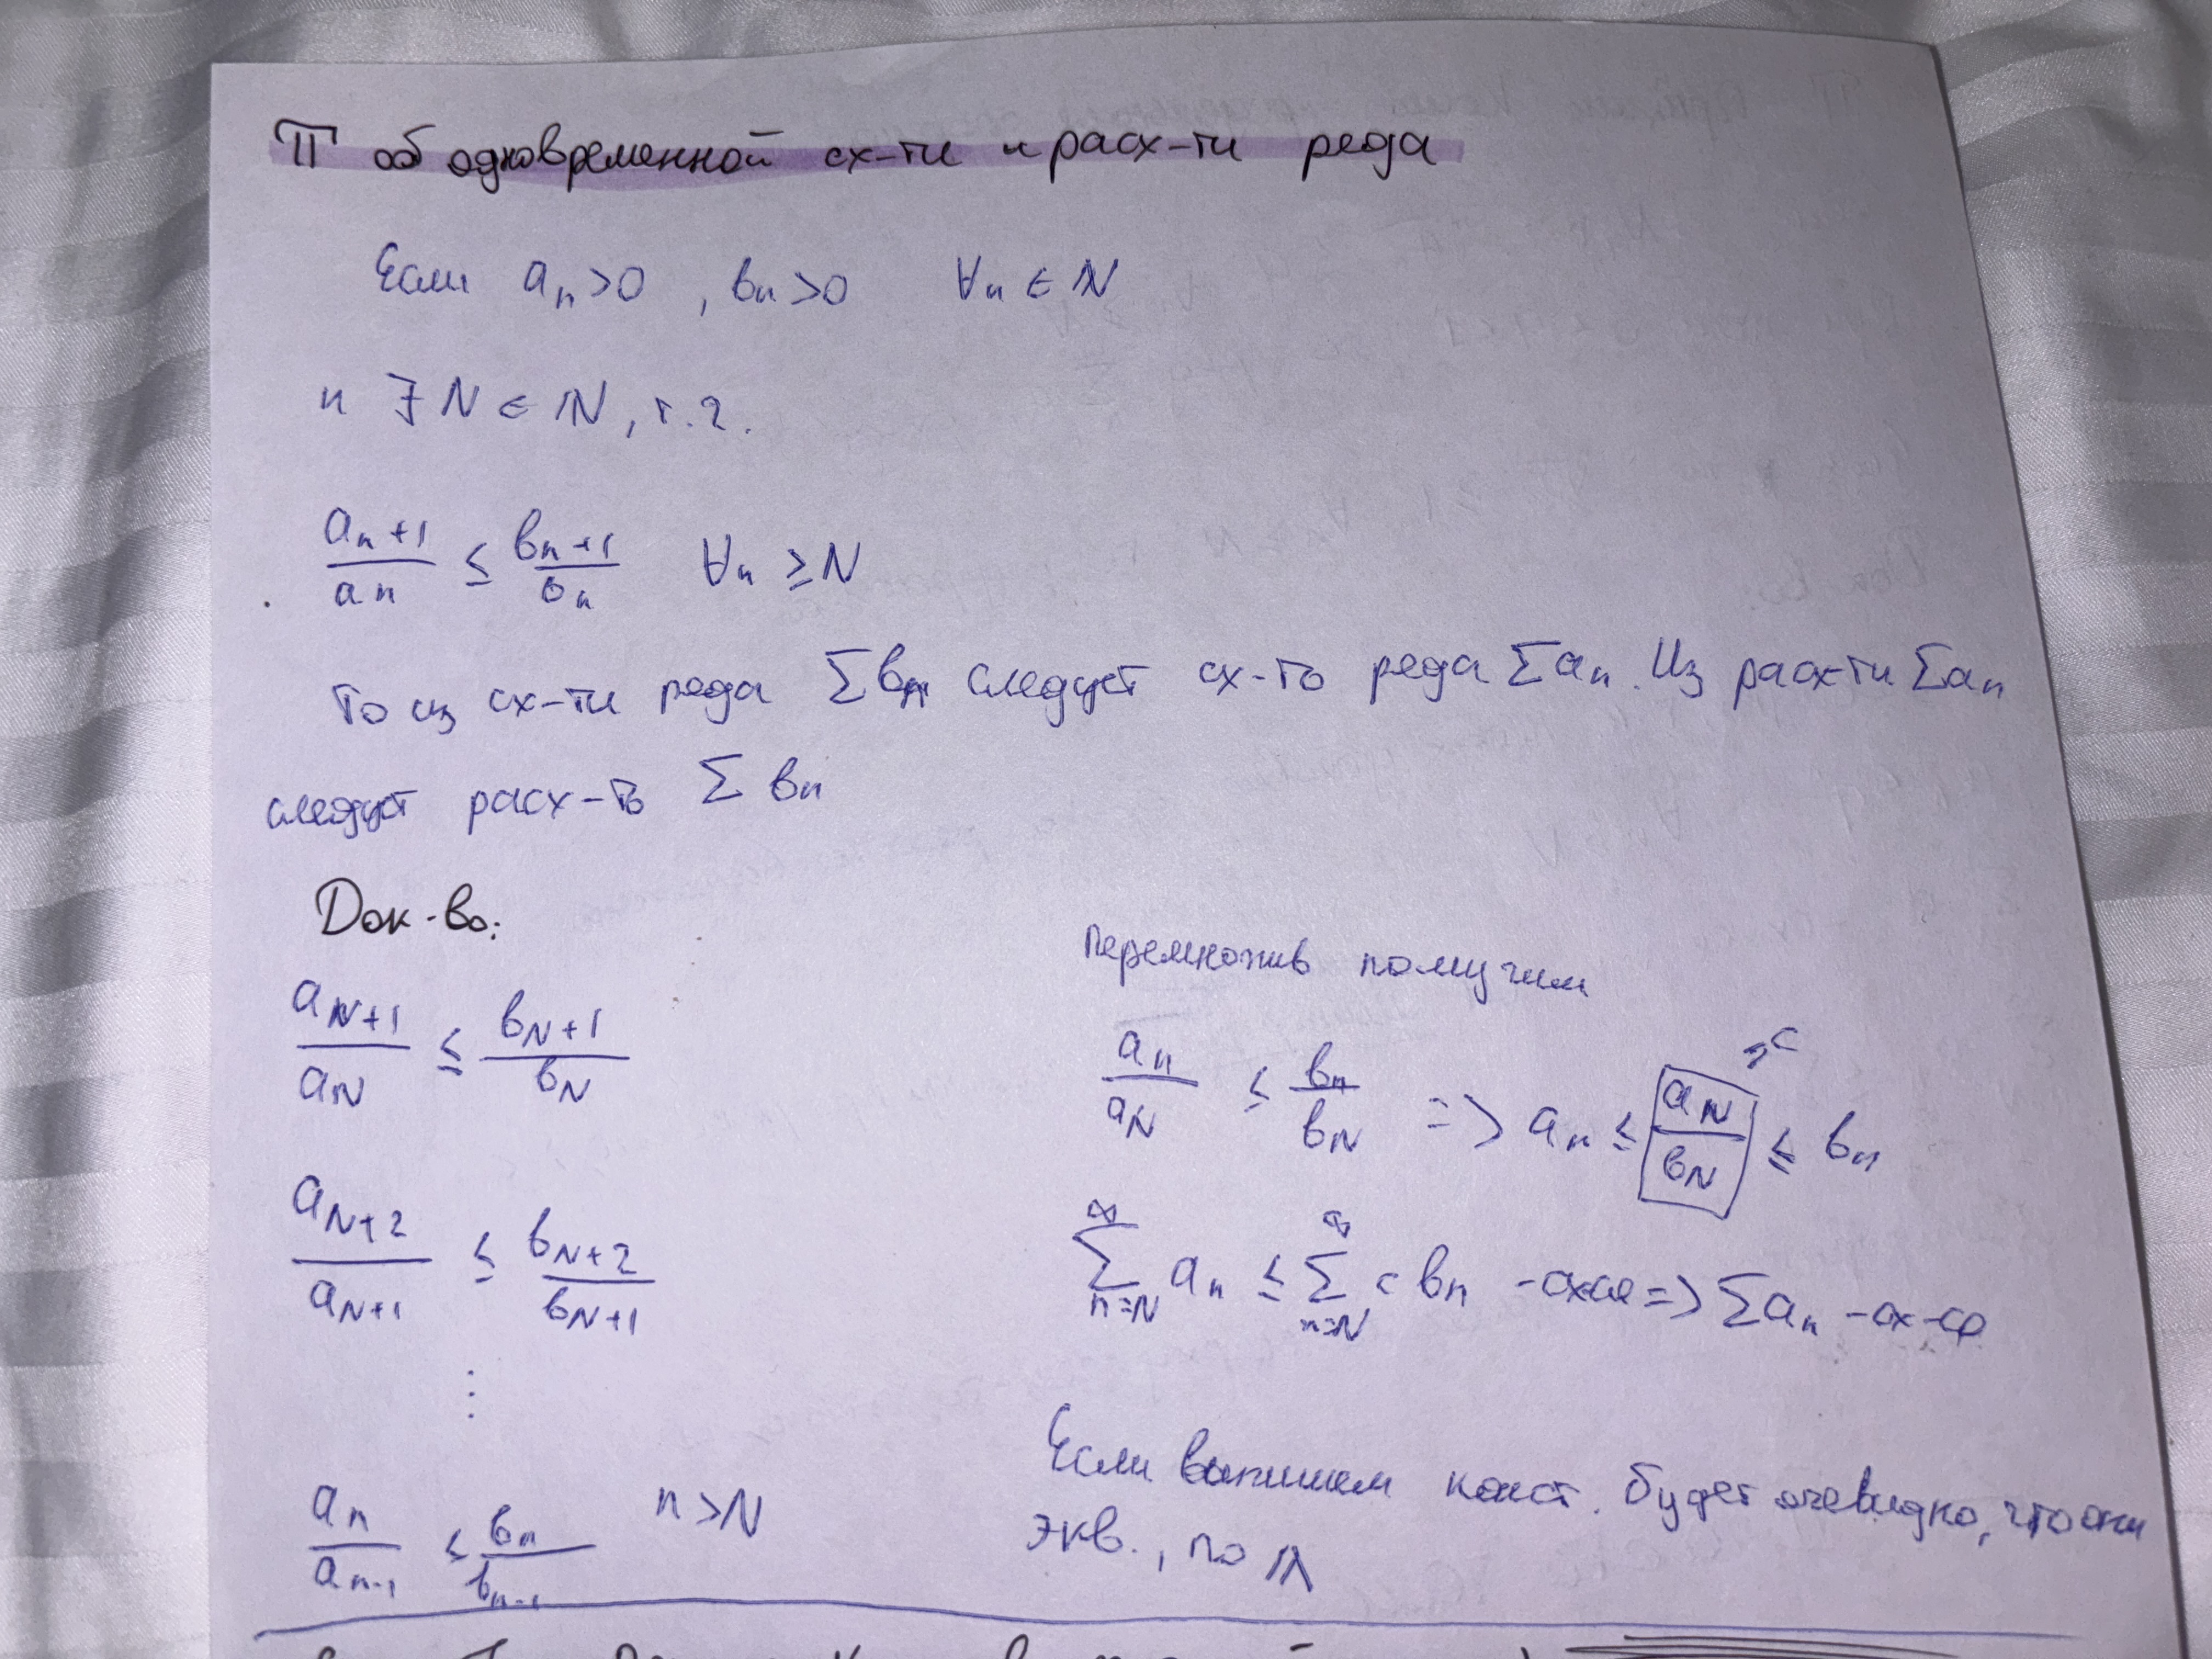 П об одновременной сх-ти и расх-ти реда
Если aₙ>0 , вₙ>0 ∀ₙ ∈ ℕ
и ∃ N ∈ ℕ, т.ч.
aₙ₊₁/aₙ ≤ вₙ₊₁/вₙ ∀ₙ ≥ N
То из сх-ти реда ∑вₙ следует сх-ть реда ∑aₙ. Из расх-ти ∑aₙ
следует расх-ть ∑ вₙ
Док-во:
a_{N+1}/a_N ≤ в_{N+1}/в_N
a_{N+2}/a_{N+1} ≤ в_{N+2}/в_{N+1}
⋮
aₙ/aₙ₋₁ ≤ вₙ/вₙ₋₁ n>N
Перемножив получим
aₙ/a_N ≤ вₙ/в_N => aₙ ≤ a_N/в_N ≤ вₙ
=c
∑_{n=N}^∞ aₙ ≤ ∑_{n=N}^∞ c вₙ -сх-ся => ∑aₙ -сх-ся
Если выпишем конст. будет очевидно, что они
экв., по